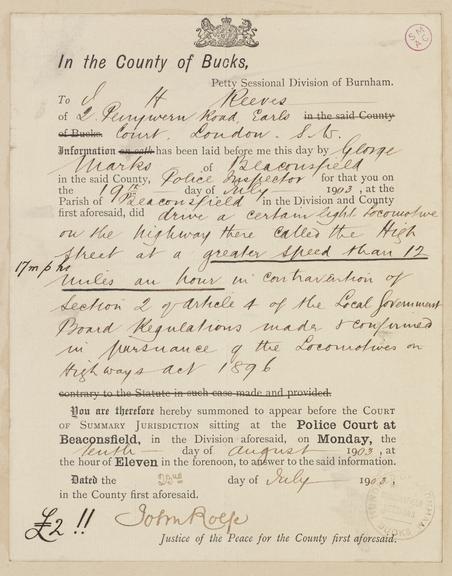 In the County of Bucks,
Petty Sessional Division of Burnham.
To J H Reeves
of 2. Penywern Road, Earls in the said County
of Bucks. Court. London. S.W.
Information on oath has been laid before me this day by George
Marks of Beaconsfield
in the said County, Police Inspector for that you on
the 19th day of July 1903, at the
Parish of Beaconsfield in the Division and County
first aforesaid, did drive a certain light locomotive
on the highway there called the High
Street at a greater speed than 12
17 m p hr
miles an hour in contravention of
Section 2 of Article 4 of the Local Government
Board Regulations made & confirmed
in pursuance of the Locomotives on
Highways Act 1896
contrary to the Statute in such case made and provided.
You are therefore hereby summoned to appear before the COURT
OF SUMMARY JURISDICTION sitting at the Police Court at
Beaconsfield, in the Division aforesaid, on Monday, the
tenth day of August 1903, at
the hour of Eleven in the forenoon, to answer to the said information.
Dated the 23rd day of July 1903,
in the County first aforesaid.
£2 !! John Rolfe
Justice of the Peace for the County first aforesaid.